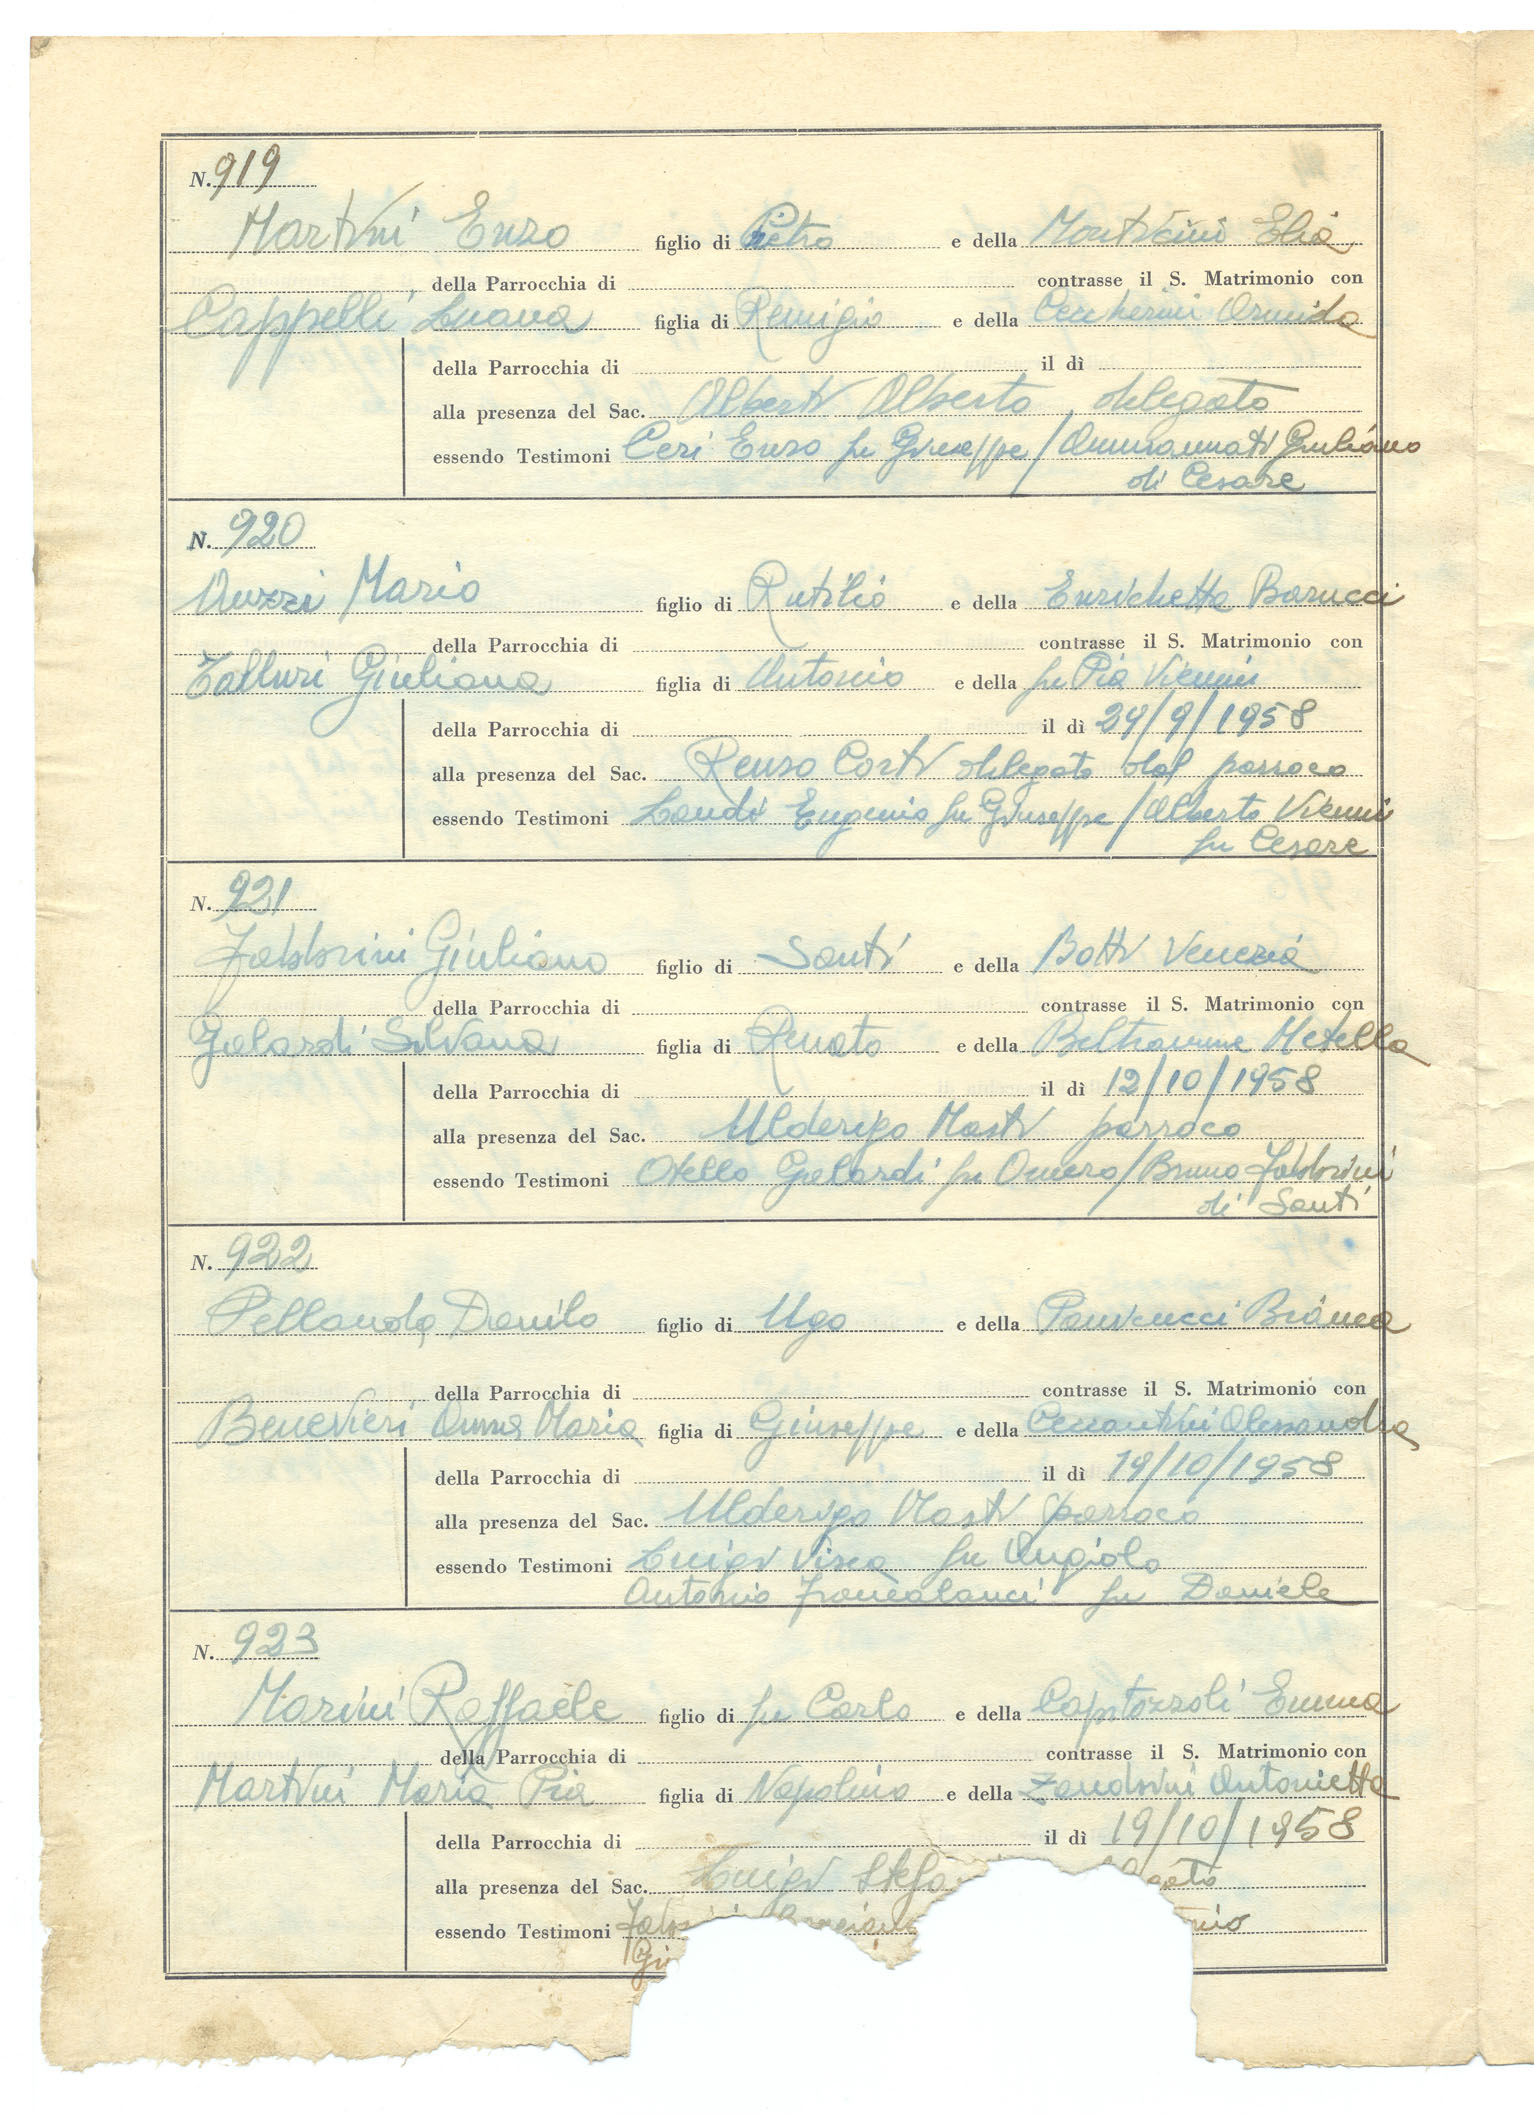 N. 919
Martini Enzo figlio di Pietro e della Monticini Elia
della Parrocchia di contrasse il S. Matrimonio con
Cappelli Luana figlia di Remigio e della Ceccherini Armida
della Parrocchia di il dì
alla presenza del Sac. Alberti Alberto, delegato
essendo Testimoni Ceri Enzo fu Giuseppe / Ammannati Giuliano
di Cesare
N. 920
Nuzzi Mario figlio di Rutilio e della Enrichetta Barucci
della Parrocchia di contrasse il S. Matrimonio con
Talluri Giuliana figlia di Antonio e della fu Pia Viciani
della Parrocchia di il dì 29/9/1958
alla presenza del Sac. Renzo Corti delegato dal parroco
essendo Testimoni Landi Eugenio fu Giuseppe / Alberto
fu Cesare
N. 921
Fabbrini Giuliano figlio di Santi e della Botti Venezia
della Parrocchia di contrasse il S. Matrimonio con
Gelardi Silvana figlia di Renato e della Beltramme Metella
della Parrocchia di il dì 12/10/1958
alla presenza del Sac. Ulderigo Masti parroco
essendo Testimoni Otello Gelardi fu Omero / Bruno Fabbrini
di Santi
N. 922
Pellanda Danilo figlio di Ugo e della Panicucci Bianca
della Parrocchia di contrasse il S. Matrimonio con
Benevieri Anna Maria figlia di Giuseppe e della Ceccantini Alessandra
della Parrocchia di il dì 19/10/1958
alla presenza del Sac. Ulderigo Masti parroco
essendo Testimoni Luigi Visca fu Angiolo
Antonio Francalanci fu Daniele
N. 923
Marini Raffaele figlio di fu Carlo e della Capitozzoli Emma
della Parrocchia di contrasse il S. Matrimonio con
Martini Maria Pia figlia di Napolino e della Zandrini Antonietta
della Parrocchia di il dì 19/10/1958
alla presenza del Sac. Luigi
essendo Testimoni